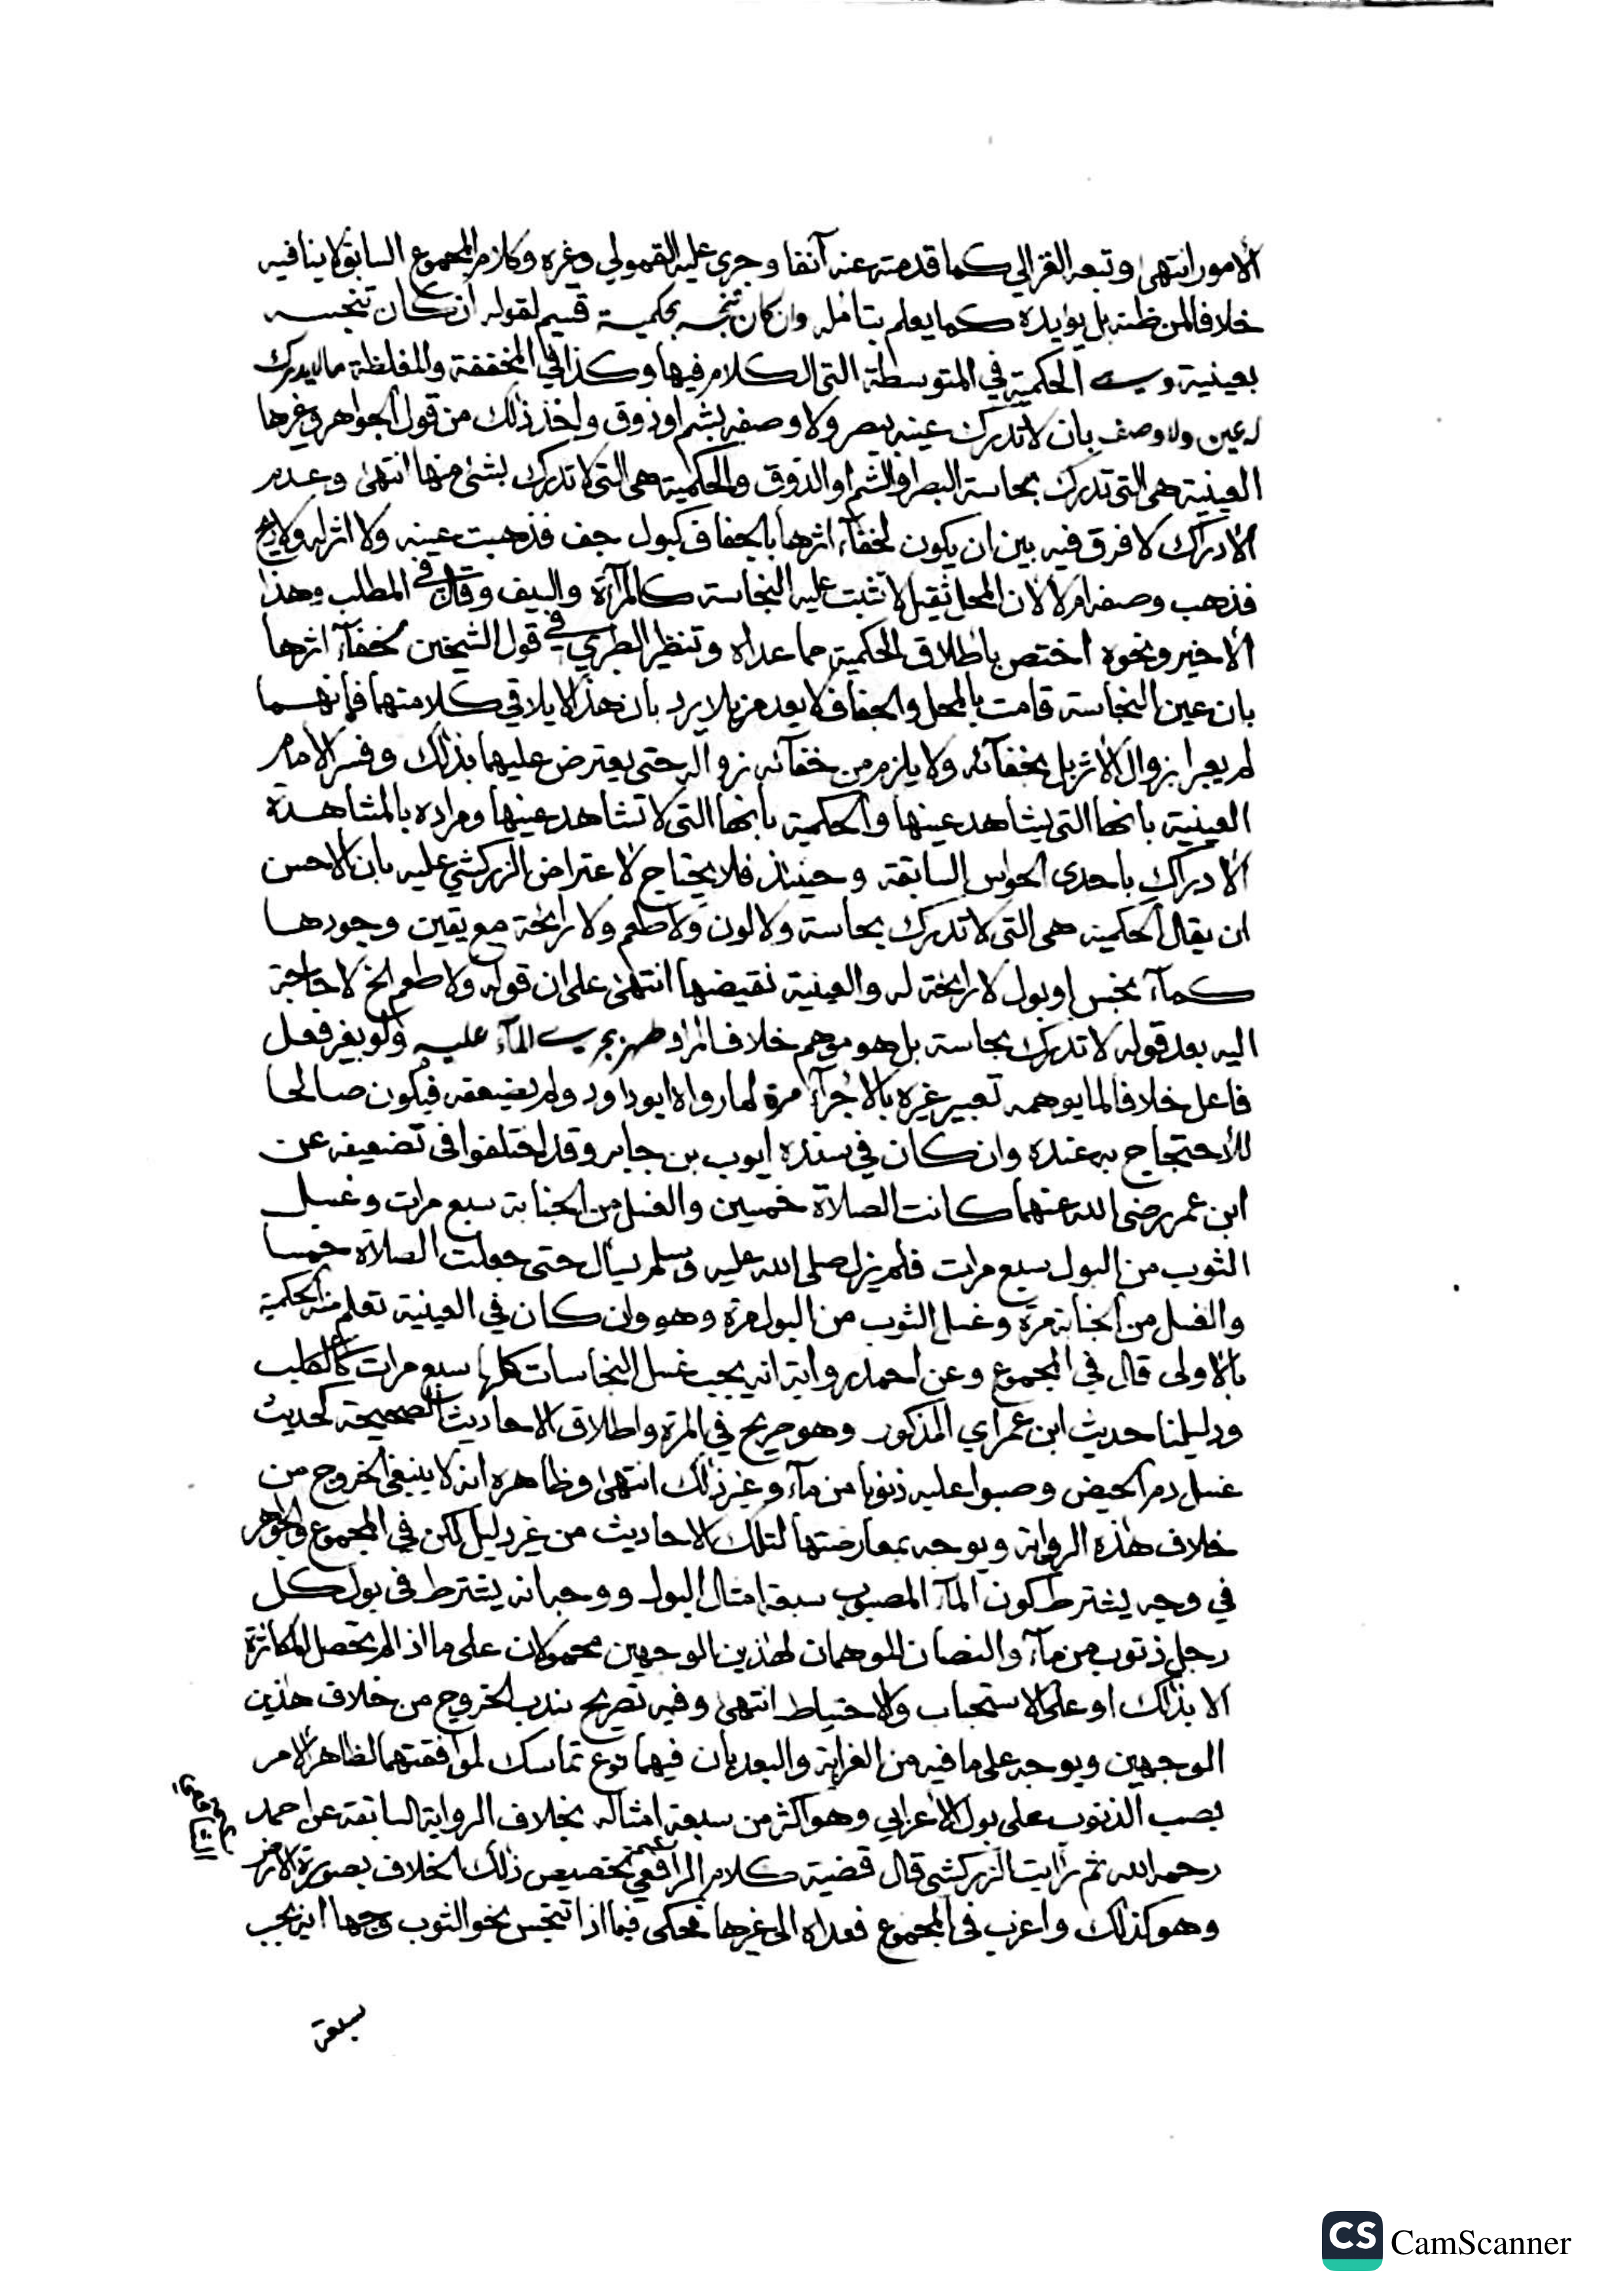 الامور انتهى وتبعه الغزالي كما قدمته عنه آنفا وجرى عليه القمولي وغيره وكلام المجموع السابق لا ينافيه
خلافا لمن ظنه بل يؤيده كما يعلم بتأمله وان كان تنجسه بحكمية قسيم لقوله ان كان تنجسه
بعينية وهي الحكمية في المتوسطة التي الكلام فيها وكذا في المخففة والمغلظة ما لا يدرك
له عين ولا وصف بان لا تدرك عينه ببصر ولا وصفه بشم او ذوق واخذ ذلك من قول الجواهر وغيرها
العينية هي التي تدرك بحاسة البصر او الشم او الذوق والحكمية هي التي لا تدرك بشئ منها انتهى وعدم
الادراك لا فرق فيه بين ان يكون لخفآء اثرها بالجفاف كبول جف فذهبت عينه ولا اثر له ولا ريح
فذهب وصفه ام لا لان المحل ثقيل لا تثبت عليه النجاسة كالمرآة والسيف وقال في المطلب وهذا
الاخير ونحوه اختص باطلاق الحكمية مما عداه وتنظير الطبري في قول الشيخين لخفآء اثرها
بان عين النجاسة قامت بالمحل والجفاف لا يعد مزيلا يرد بان هذا لا يلاقي كلامهما فانهما
لم يعبرا بزوال الاثر بل بخفآئه ولا يلزم من خفآئه زواله حتى يعترض عليهما بذلك وفسر الامام
العينية بانها التي يشاهد عينها والحكمية بانها التي لا تشاهد عينها ومراده بالمشاهدة
الادراك باحدى الحواس السابقة وحينئذ فلا يحتاج لاعتراض الزركشي عليه بان الاحسن
ان يقال الحكمية هي التي لا تدرك بحاسة ولا لون ولا طعم ولا رائحة مع يقين وجودها
كمآء نجس او بول لا رائحة له والعينية نقيضها انتهى على ان قوله ولا طعم الخ لا حاجة
اليه بعد قوله لا تدرك بحاسة بل هو موهم خلاف المراد طهر بجري المآء عليه ولو بغير فعل
فاعل خلافا لما يوهمه تعبير غيره بالاجرآء مرة لما رواه ابو داود ولم يضعفه فيكون صالحا
للاحتجاج به عنده وان كان في سنده ايوب بن جابر وقد اختلفوا في تضعيفه عن
ابن عمر رضي الله عنهما كانت الصلاة خمسين والغسل من الجنابة سبع مرات وغسل
الثوب من البول سبع مرات فلم يزل صلى الله عليه وسلم يسأل حتى جعلت الصلاة خمسا
والغسل من الجنابة مرة وغسل الثوب من البول مرة وهو وان كان في العينية تعلم منه الحكمية
بالاولى قال في المجموع وعن احمد رواية انه يجب غسل النجاسات كلها سبع مرات كالكلب
ودليلنا حديث ابن عمر اي المذكور وهو صريح في المرة واطلاق الاحاديث الصحيحة كحديث
غسل دم الحيض وصبوا عليه ذنوبا من مآء وغير ذلك انتهى وظاهره انه لا ينبغي الخروج من
خلاف هذه الرواية ويوجه بمعارضتها لتلك الاحاديث من غير دليل لكن في المجموع والجواهر
في وجه يشترط كون المآء المصبوب سبعة امثال البول ووجه انه يشترط في بول كل
رجل ذنوب من مآء والنصان الموهمان لهذين الوجهين محمولان على ما اذا لم تحصل المكاثرة
الا بذلك او على الاستحباب والاحتياط انتهى وفيه تصريح بندب الخروج من خلاف هذين
الوجهين ويوجه على ما فيه من الغرابة والبعد بان فيهما نوع تماسك لموافقتهما لظاهر الامر
بصب الذنوب على بول الاعرابي وهو اكثر من سبعة امثاله بخلاف الرواية السابقة عن احمد
رحمه الله ثم رايت الزركشي قال قضية كلام الرافعي تخصيص ذلك الخلاف بصورة الارض
وهو كذلك واغرب في المجموع فعداه الى غيرها فحكى فيما اذا تنجس نحو الثوب وجها انه يجب
سبعة